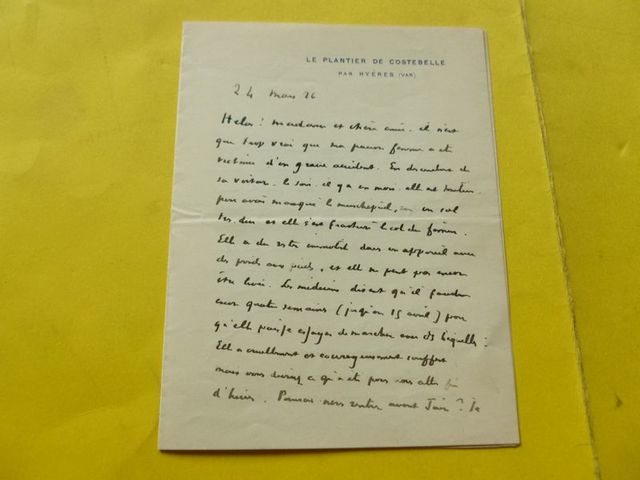 LE PLANTIER DE COSTEBELLE
PAR HYÈRES (VAR)
24 mars 26
Helas ! madame et chère amie, il n'est
que trop vrai que ma pauvre femme a été
victime d'un grave accident. En descendant de
sa voiture, le soir, il y a un mois, elle est tombée
pour avoir manqué le marchepied, sur un sol
très dur et elle s'est fracturé le col du fémur.
Elle a du rester immobile dans un appareil avec
des poids aux pieds, et elle ne peut pas encore
être levée. Les médecins disent qu'il faudra
encore quatre semaines (jusqu'au 15 avril) pour
qu'elle puisse essayer de marcher avec des béquilles.
Elle a cruellement et courageusement souffert
mais vous devinez ce qu'a été pour nous cette fin
d'hiver. Pourrons nous rentrer avant Juin ? Je